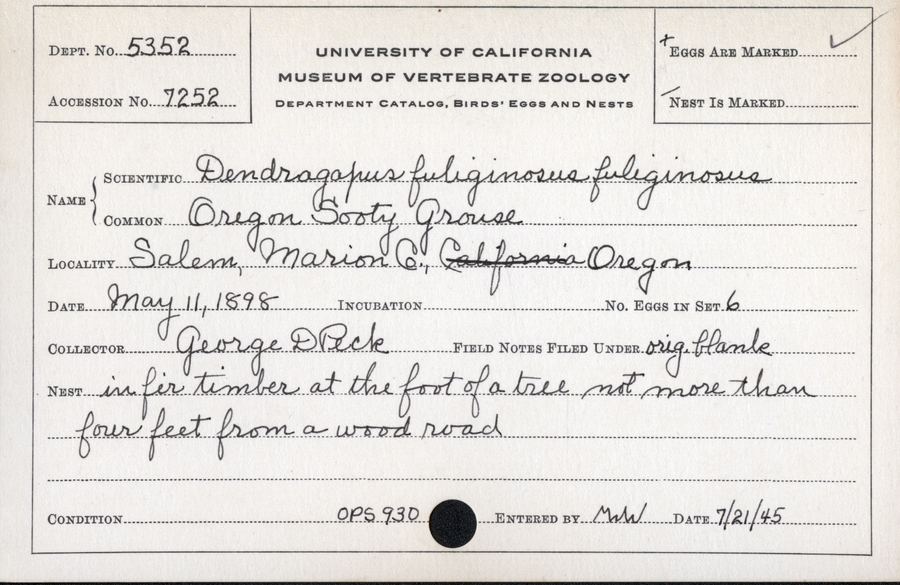 Dept. No. 5352
Accession No. 7252
UNIVERSITY OF CALIFORNIA
MUSEUM OF VERTEBRATE ZOOLOGY
Department Catalog, Birds' Eggs and Nests
+ Eggs Are Marked ✓
Nest Is Marked
Name
Scientific Dendragapus fuliginosus fuliginosus
Common Oregon Sooty Grouse
Locality Salem, Marion Co., California Oregon
Date May 11, 1898 Incubation No. Eggs in Set 6
Collector George D Peck Field Notes Filed Under orig. blank
Nest in fir timber at the foot of a tree not more than
four feet from a wood road
Condition OPS 930 Entered by MWW Date 7/21/45